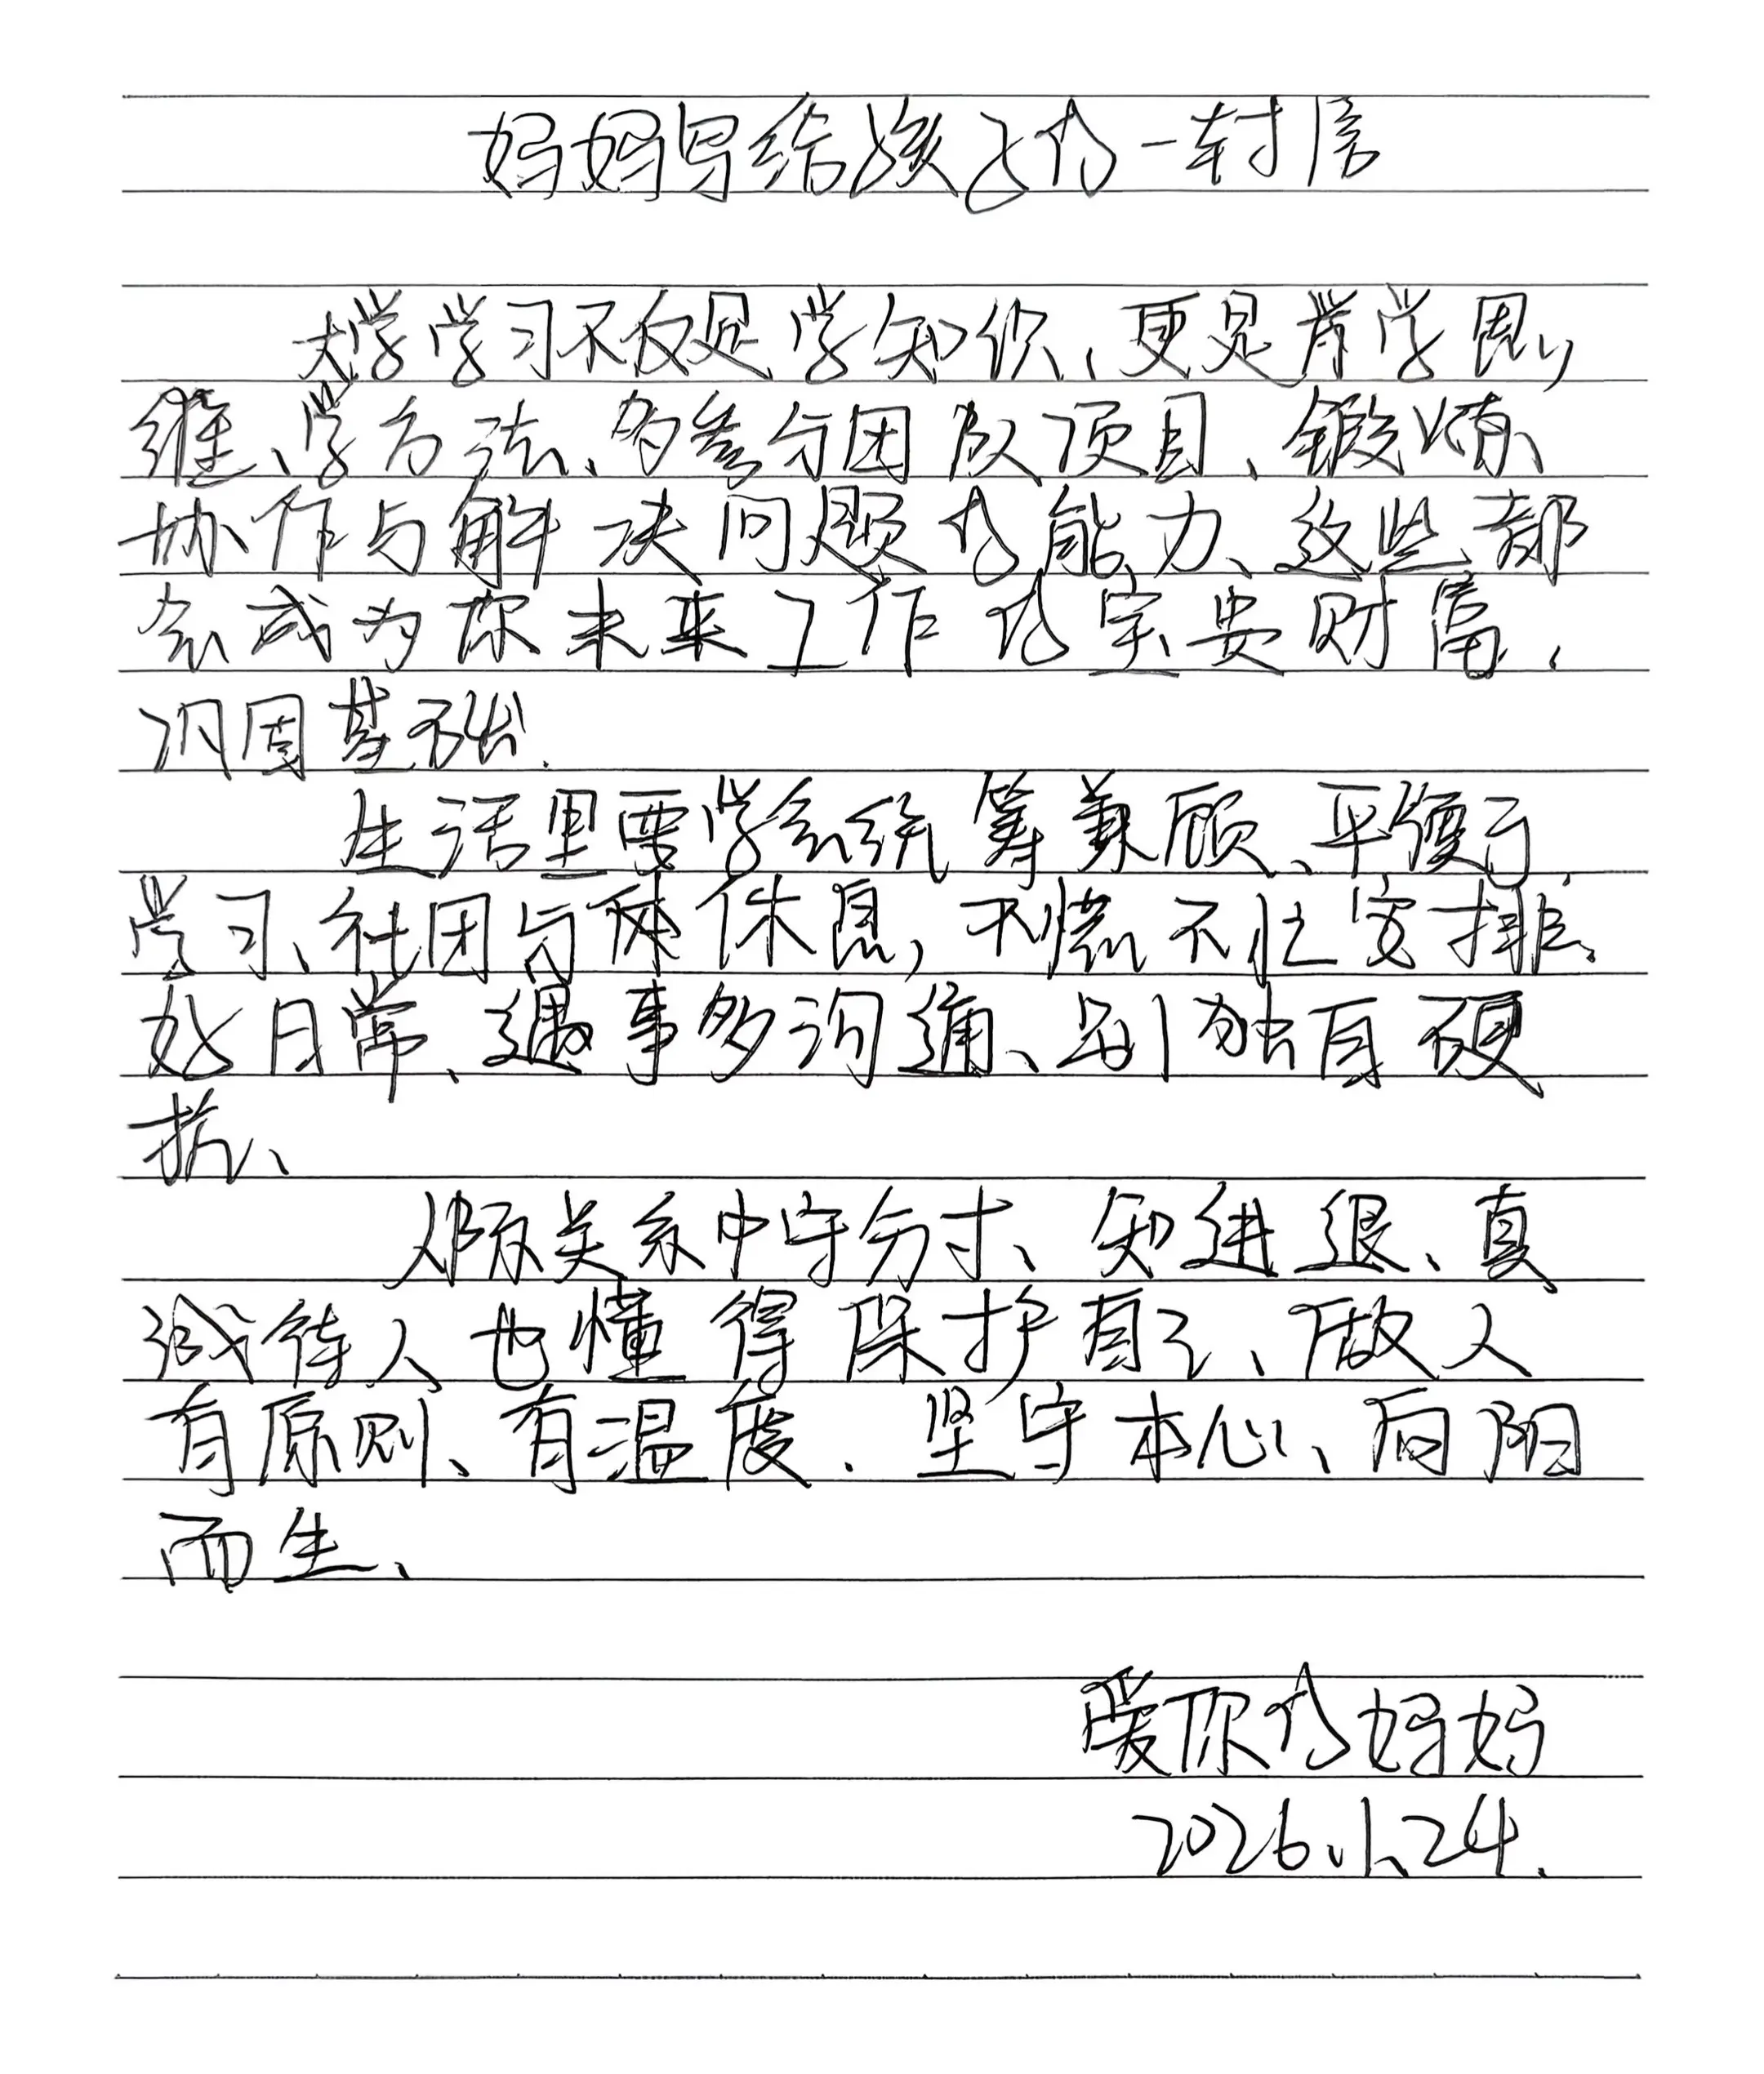 妈妈写给孩子的一封信
大学学习不仅是学知识、更是学思
维、学方法、多参与团队项目、锻炼
协作与解决问题的能力、这些都
会成为你未来工作的宝贵财富.
巩固基础.
生活里要学会统筹兼顾、平衡了
学习、社团与休息,不慌不忙安排
好日常、遇事多沟通、别独自硬
抗、
人际关系中守分寸、知进退、真
诚待人也懂得保护自己、做人
有原则、有温度.坚守本心、向阳
而生、
爱你的妈妈
2026.1.24.